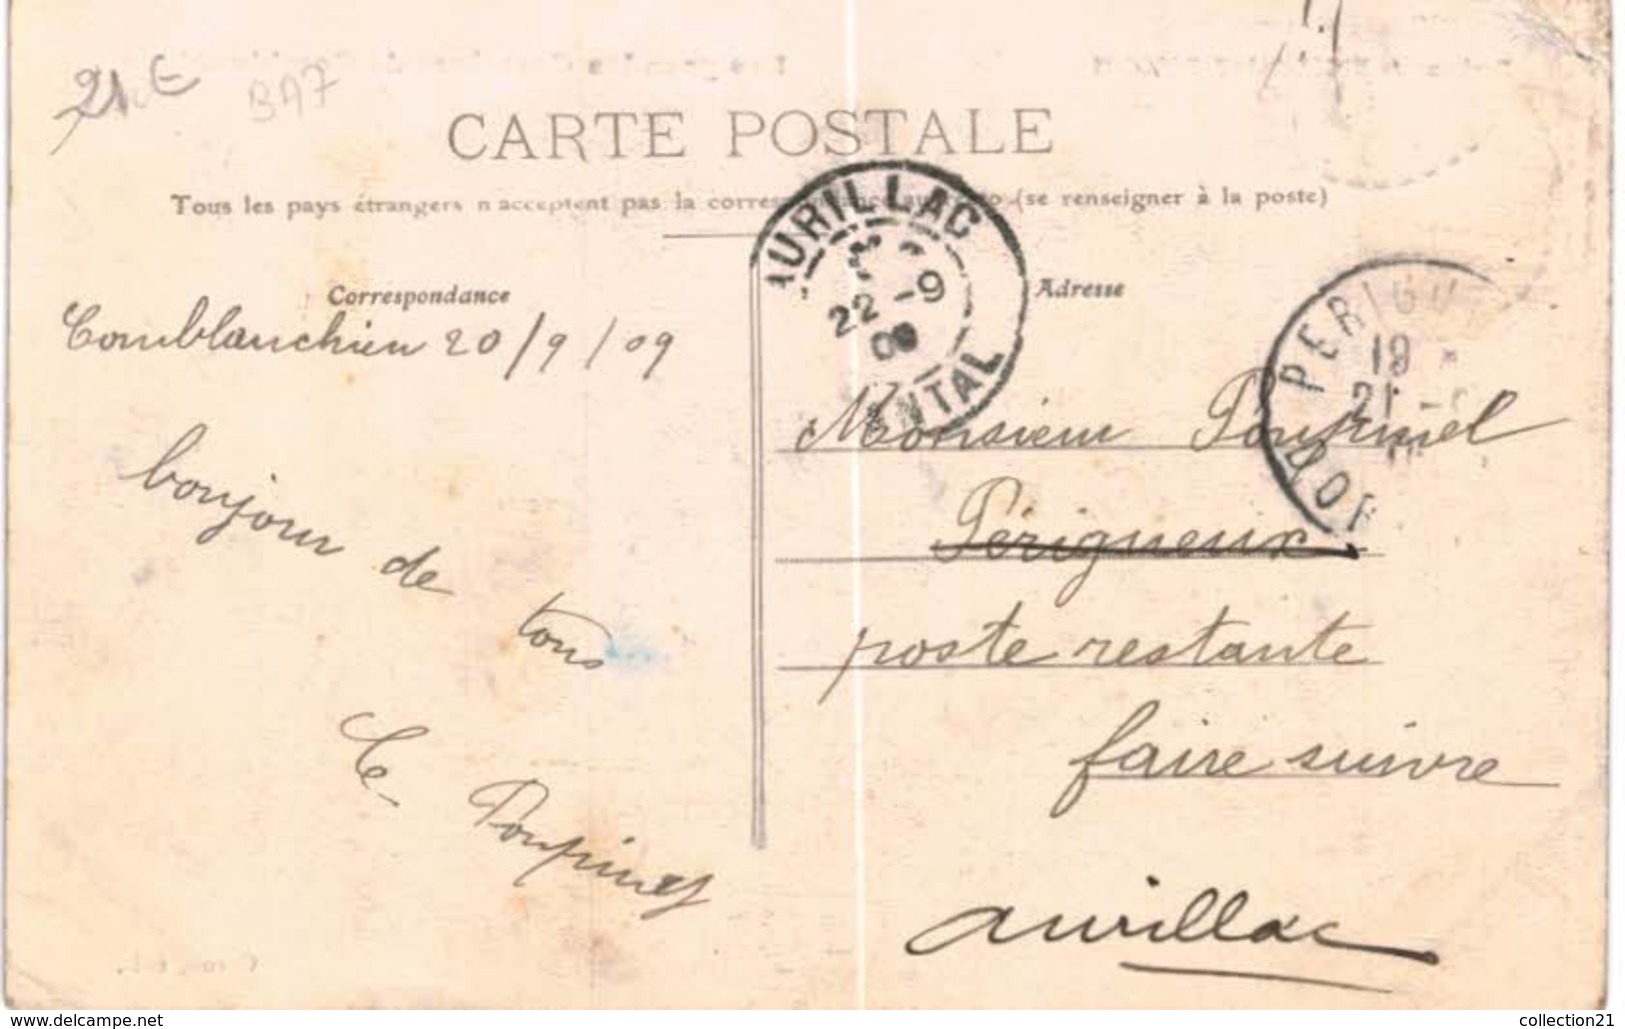 21 €
BA7
CARTE POSTALE
Tous les pays étrangers n'acceptent pas la correspondance au recto (se renseigner à la poste)
Correspondance
Adresse
AURILLAC
22 -9
09
CANTAL
PERIGUEUX
19 *
21 -
DOR
Comblanchien 20/9/09
bonjour de tous
C. Poupinet
Monsieur
Périgueux
poste restante
faire suivre
Aurillac
www.delcampe.net
collection21